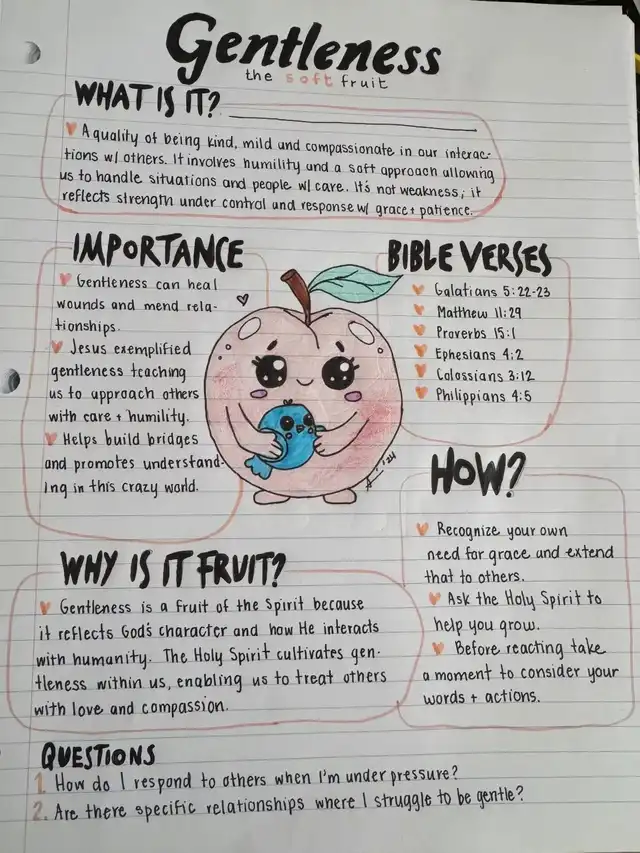 Gentleness
the soft fruit
WHAT IS IT?
A quality of being kind, mild and compassionate in our interac-
tions w/ others. It involves humility and a soft approach allowing
us to handle situations and people w/ care. It's not weakness; it
reflects strength under control and response w/ grace + patience.
IMPORTANCE
Gentleness can heal
wounds and mend rela-
tionships.
Jesus exemplified
gentleness teaching
us to approach others
with care + humility.
Helps build bridges
and promotes understand-
ing in this crazy world.
BIBLE VERSES
Galatians 5:22-23
Matthew 11:29
Proverbs 15:1
Ephesians 4:2
Colossians 3:12
Philippians 4:5
'24
HOW?
Recognize your own
need for grace and extend
that to others.
Ask the Holy Spirit to
help you grow.
Before reacting take
a moment to consider your
words + actions.
WHY IS IT FRUIT?
Gentleness is a fruit of the Spirit because
it reflects God's character and how He interacts
with humanity. The Holy Spirit cultivates gen-
tleness within us, enabling us to treat others
with love and compassion.
QUESTIONS
1. How do I respond to others when I'm under pressure?
2. Are there specific relationships where I struggle to be gentle?